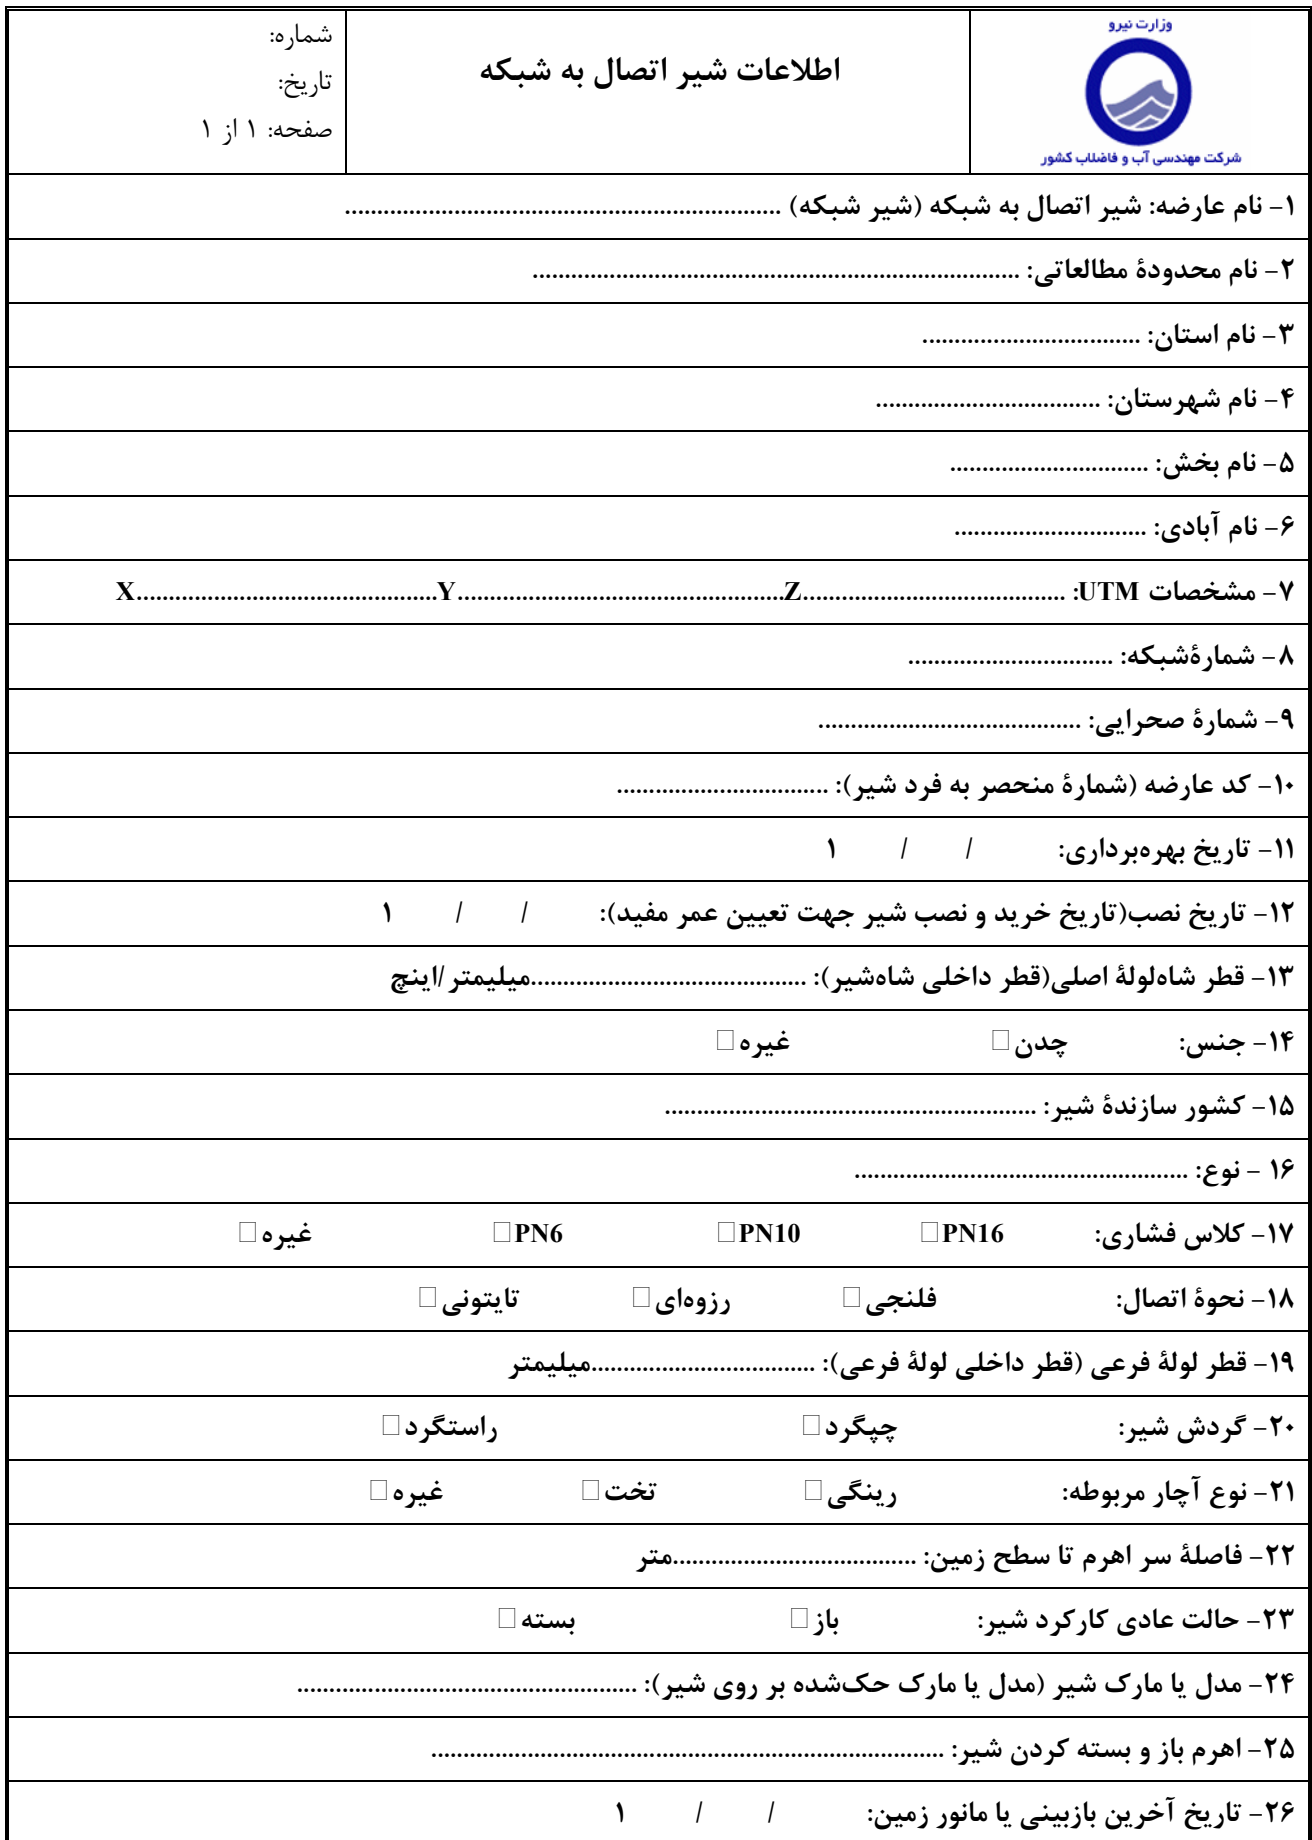 وزارت نیرو
شرکت مهندسی آب و فاضلاب کشور
اطلاعات شیر اتصال به شبکه
شماره:
تاریخ:
صفحه: ۱ از ۱
۱- نام عارضه: شیر اتصال به شبکه (شیر شبکه) ....................................................................
۲- نام محدودهٔ مطالعاتی: ............................................................................
۳- نام استان: ..................................
۴- نام شهرستان: ...................................
۵- نام بخش: ...............................
۶- نام آبادی: ..............................
۷- مشخصات UTM: .........................................Z...................................................Y...............................................X
۸- شمارهٔشبکه: ................................
۹- شمارهٔ صحرایی: .........................................
۱۰- کد عارضه (شمارهٔ منحصر به فرد شیر): .................................
۱۱- تاریخ بهره‌برداری: / / ۱
۱۲- تاریخ نصب(تاریخ خرید و نصب شیر جهت تعیین عمر مفید): / / ۱
۱۳- قطر شاه‌لولهٔ اصلی(قطر داخلی شاه‌شیر): ...........................................میلیمتر/اینچ
۱۴- جنس: چدن□ غیره□
۱۵- کشور سازندهٔ شیر: ..........................................................
۱۶ - نوع: ....................................................
۱۷- کلاس فشاری: PN16□ PN10□ PN6□ غیره□
۱۸- نحوهٔ اتصال: فلنجی□ رزوه‌ای□ تایتونی□
۱۹- قطر لولهٔ فرعی (قطر داخلی لولهٔ فرعی): ...................................میلیمتر
۲۰- گردش شیر: چپگرد□ راستگرد□
۲۱- نوع آچار مربوطه: رینگی□ تخت□ غیره□
۲۲- فاصلهٔ سر اهرم تا سطح زمین: ......................................متر
۲۳- حالت عادی کارکرد شیر: باز□ بسته□
۲۴- مدل یا مارک شیر (مدل یا مارک حک‌شده بر روی شیر): .....................................................
۲۵- اهرم باز و بسته کردن شیر: ................................................................................
۲۶- تاریخ آخرین بازبینی یا مانور زمین: / / ۱